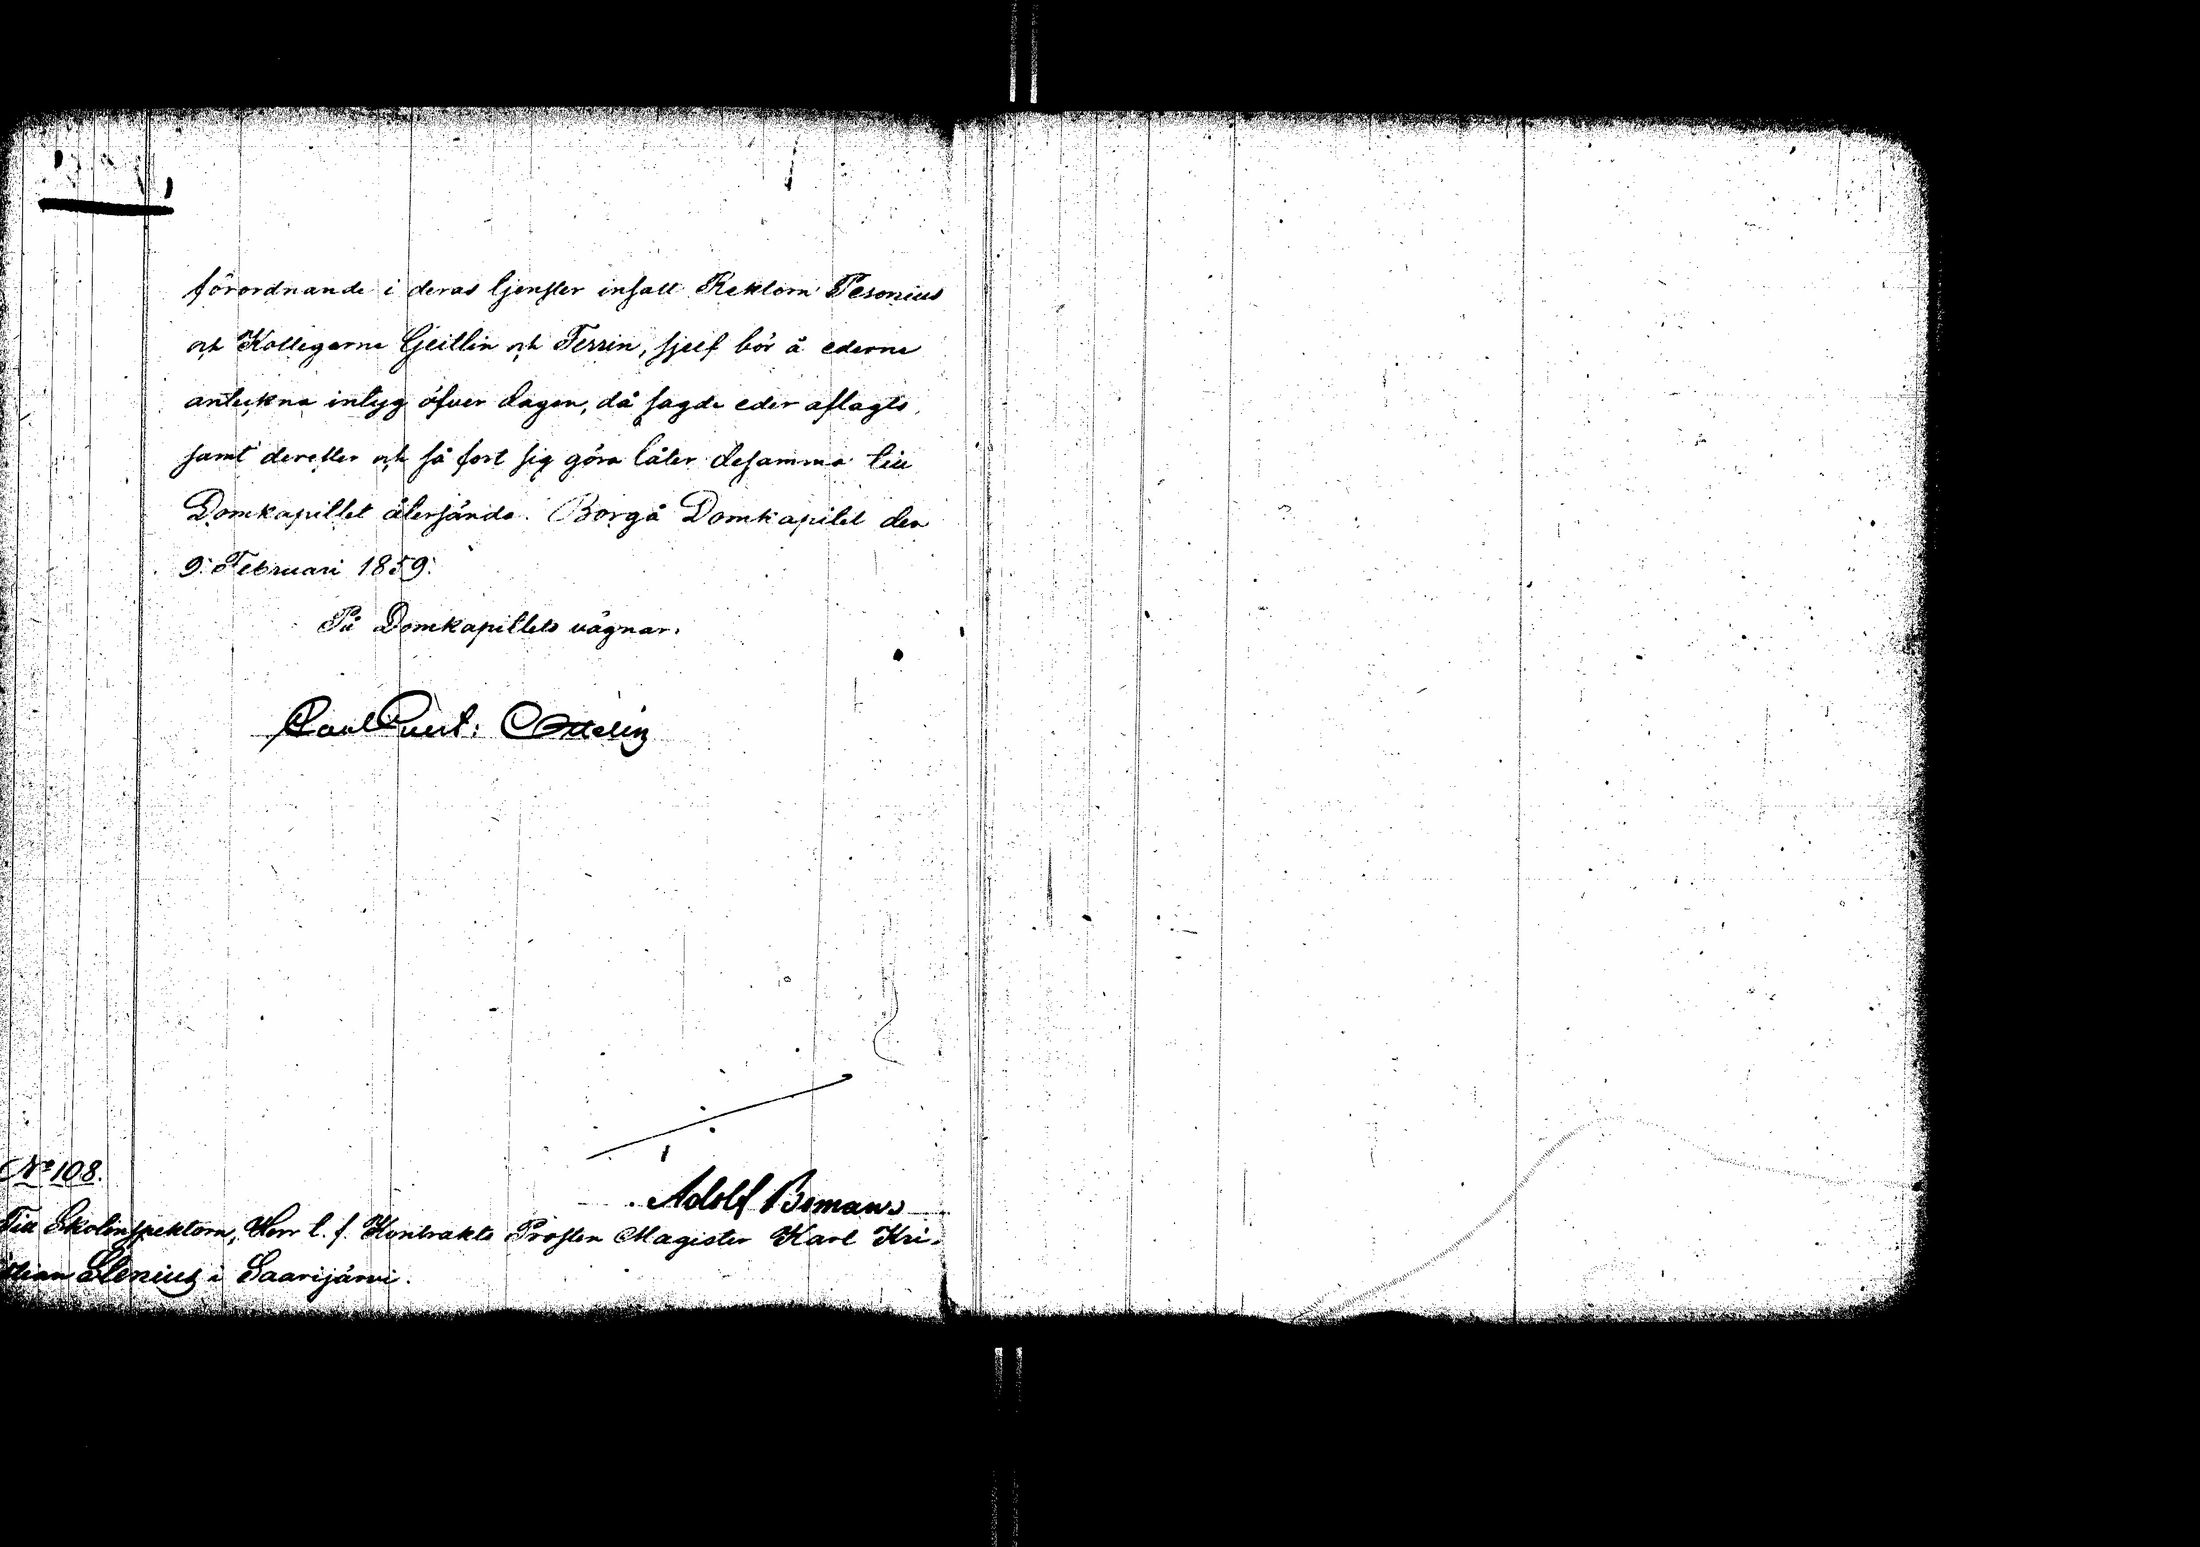 förordnande i deras tjenster insatt Rektorn Pesonius
och Kollegerne Geitlin och Ferrin, sjelf bör å ederne
anteckna intyg öfver dagen, då sagde eder aflagts,
samt derefter och så fort sig göra låter desamma till
Domkapitlet återsända. Borgå Domkapitel den
9. Februari 1859.
På Domkapitlets vägnar:
Carl Gust: Ottelin
Adolf Boman
No 108.
Till Skolinspektorn, Herr t. f. Kontrakts Prosten Magister Karl Kri-
stian Stenius i Saarijärvi.